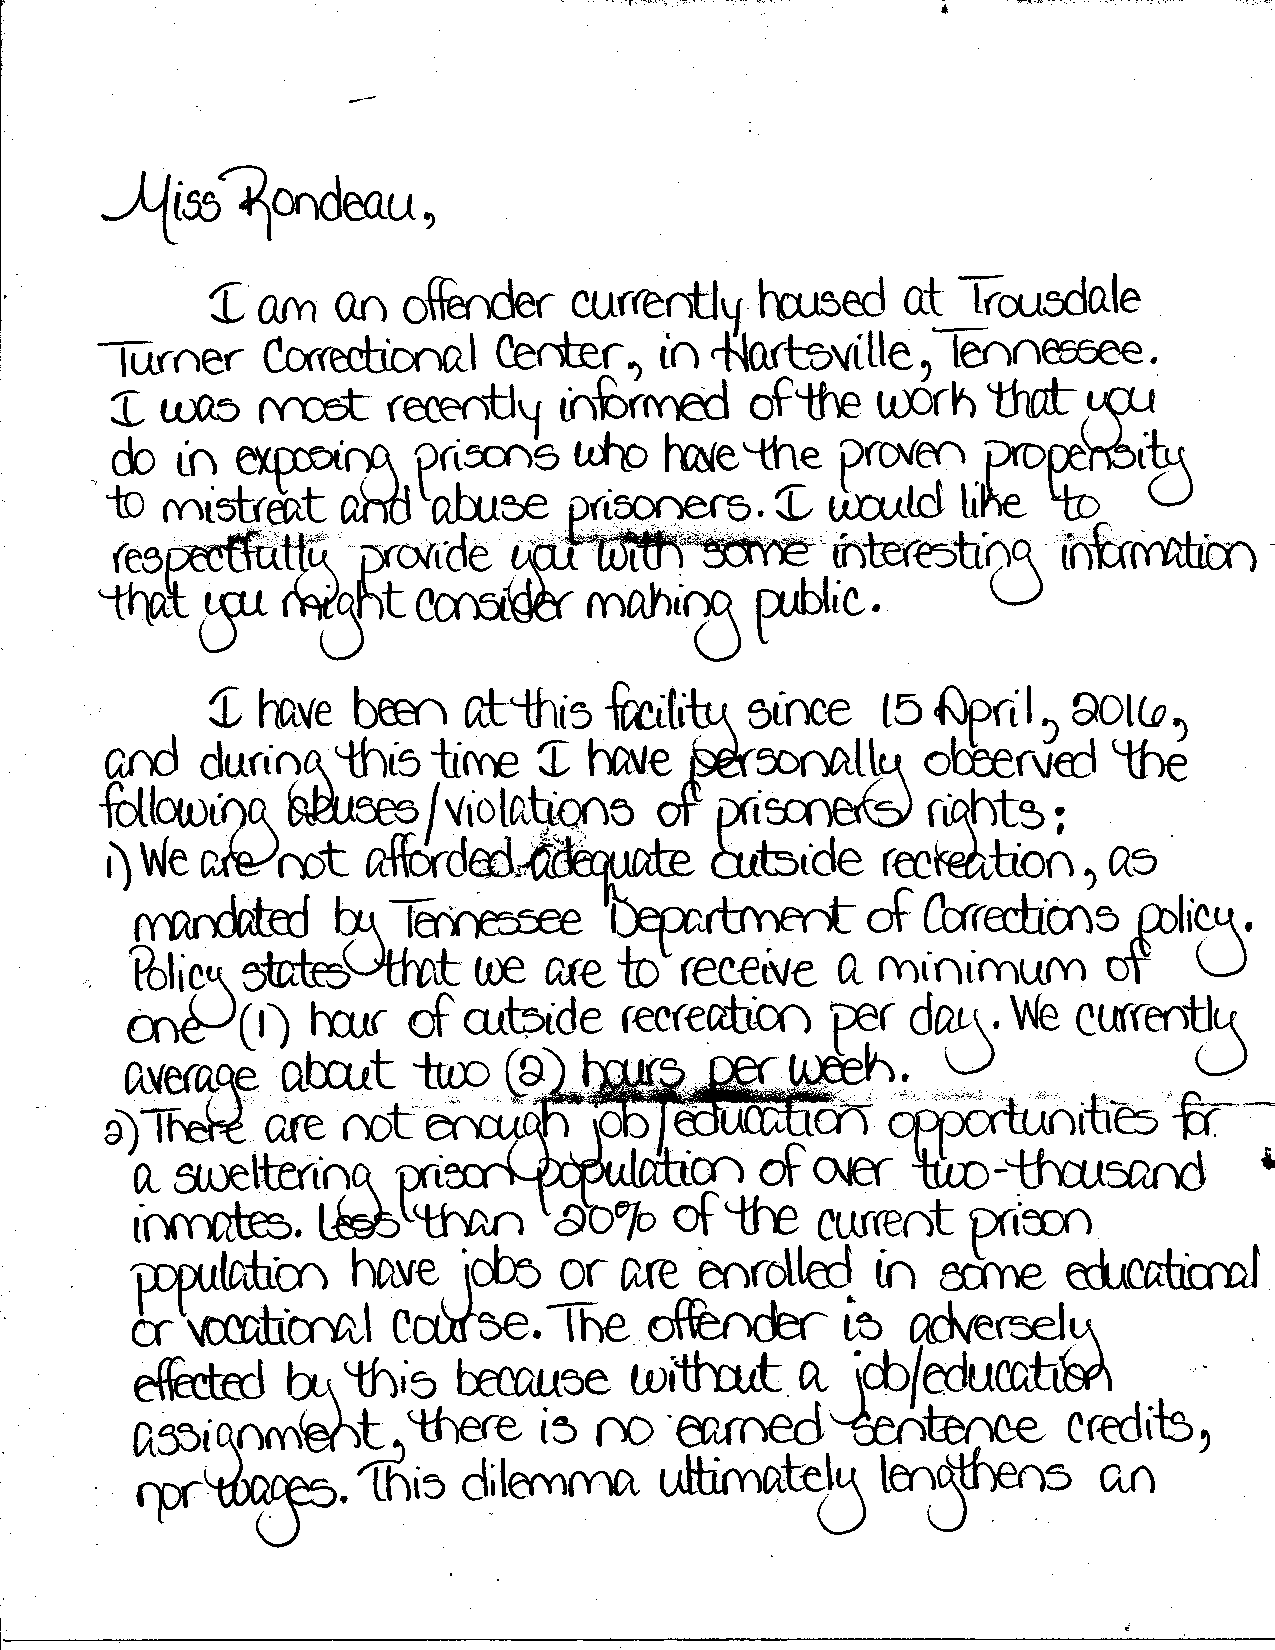 Miss Rondeau,
I am an offender currently housed at Trousdale
Turner Correctional Center, in Hartsville, Tennessee.
I was most recently informed of the work that you
do in exposing prisons who have the proven propensity
to mistreat and abuse prisoners. I would like to
respectfully provide you with some interesting information
that you might consider making public.
I have been at this facility since 15 April, 2016,
and during this time I have personally observed the
following abuses/violations of prisoner(s) rights:
1) We are not afforded adequate outside recreation, as
mandated by Tennessee Department of Corrections policy.
Policy states that we are to receive a minimum of
one (1) hour of outside recreation per day. We currently
average about two (2) hours per week.
2) There are not enough job/education opportunities for
a sweltering prison population of over two-thousand
inmates. Less than 20% of the current prison
population have jobs or are enrolled in some educational
or vocational course. The offender is adversely
effected by this because without a job/education
assignment, there is no earned sentence credits,
nor wages. This dilemma ultimately lengthens an